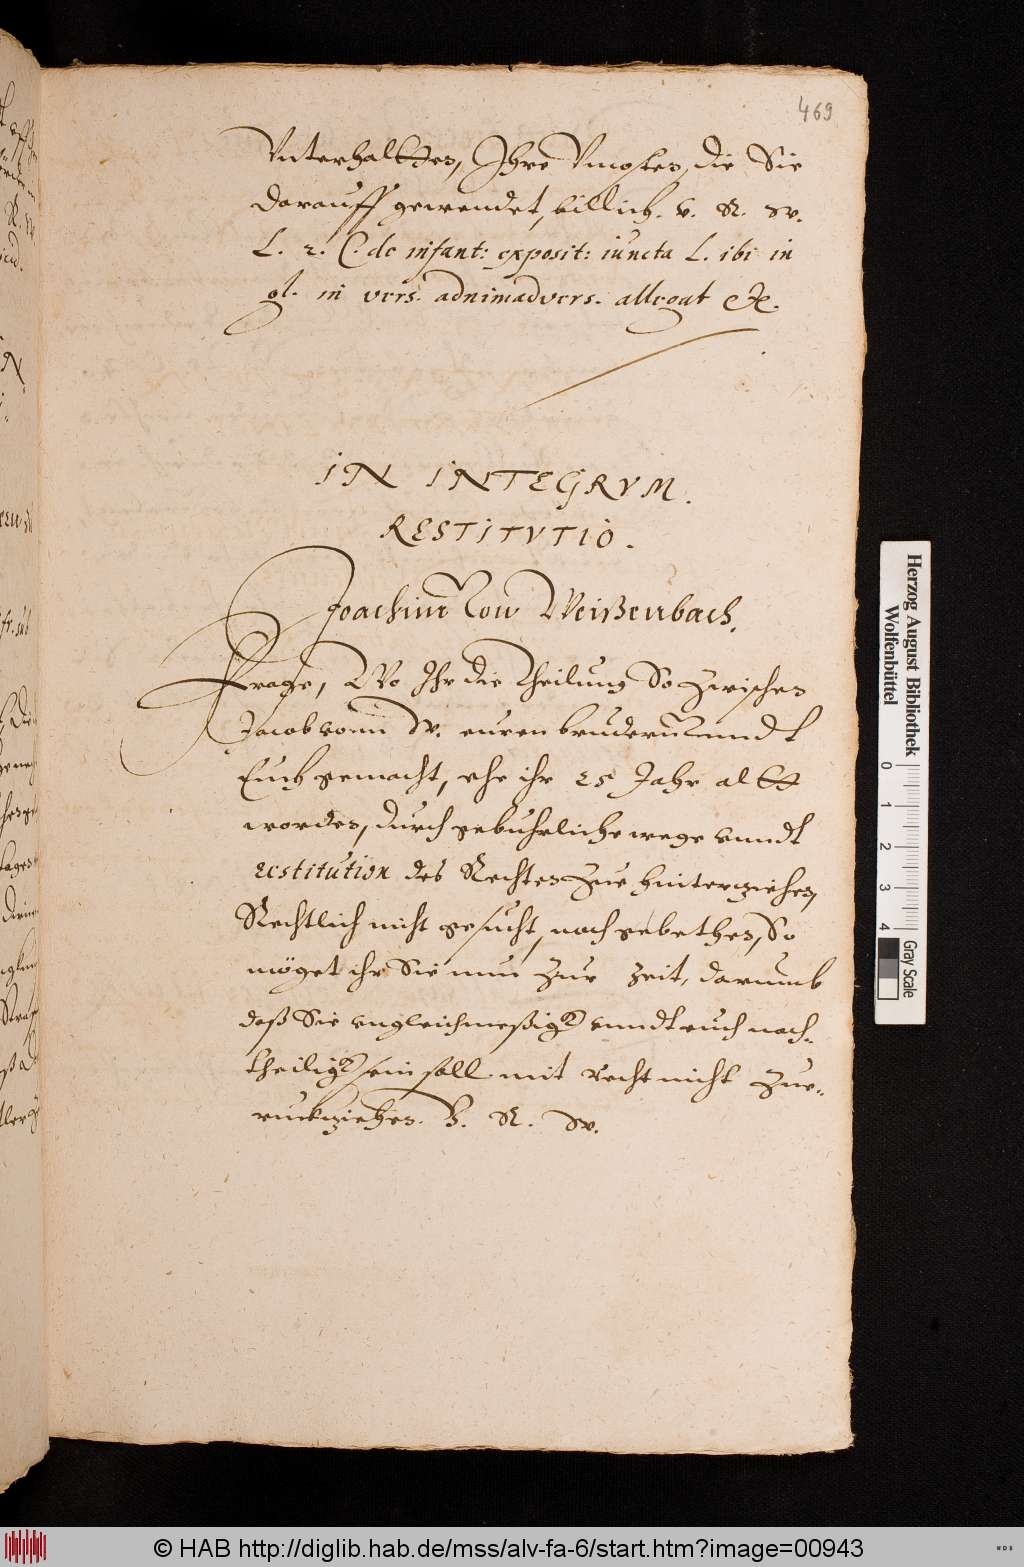 469
Vnterhaltten, Ihre Vnosten, die Sie
darauff gewendet, billich. V. R. W.
L. 2. C. de infant: exposit: iuncta L. ibi in
gl. in vers. adnimadvers. allegat etc.
IN INTEGRVM.
RESTITVTIO.
Joachim von Weißenbach.
Frage, Wo Ihr die Theilung So zwischen
Jacob vonn W. euren brudern vnndt
Euch gemacht, ehe ihr 25 Jahr altt
worden, durch gebuhrliche wege vnndt
restitution des Rechten zue hinterziehen,
Rechtlich nicht gesucht, noch gebethen, So
möget ihr Sie nun zur Zeit, darumb
daß Sie vngleichmeßigk vnndt euch nach-
theiligk sein soll mit recht nicht zue-
ruckziehen. V. R. W.
Herzog August Bibliothek
Wolfenbüttel
0 1 2 3 4
Gray Scale
© HAB http://diglib.hab.de/mss/alv-fa-6/start.htm?image=00943